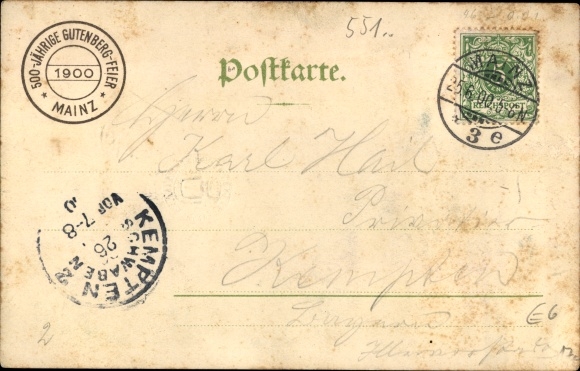 500-JÄHRIGE GUTENBERG-FEIER
1900
* MAINZ *
551..
Postkarte.
REICHSPOST
3 e
Herrn
Karl Hail
Privatier
Kempten
KEMPTEN 2
SCHWABEN
26
VOR 7-8
Bayern
E6
2